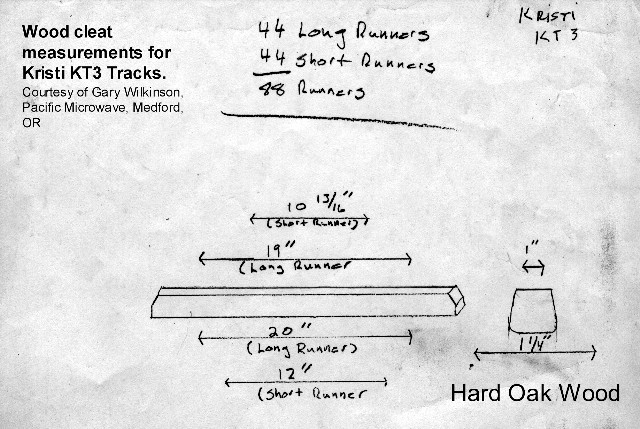 Wood cleat
measurements for
Kristi KT3 Tracks.
Courtesy of Gary Wilkinson,
Pacific Microwave, Medford,
OR
44 Long Runners
44 Short Runners
88 Runners
KRISTI
KT 3
10 13/16"
(Short Runner)
19"
(Long Runner
20"
(Long Runner)
12"
(Short Runner
1"
1 1/4"
Hard Oak Wood